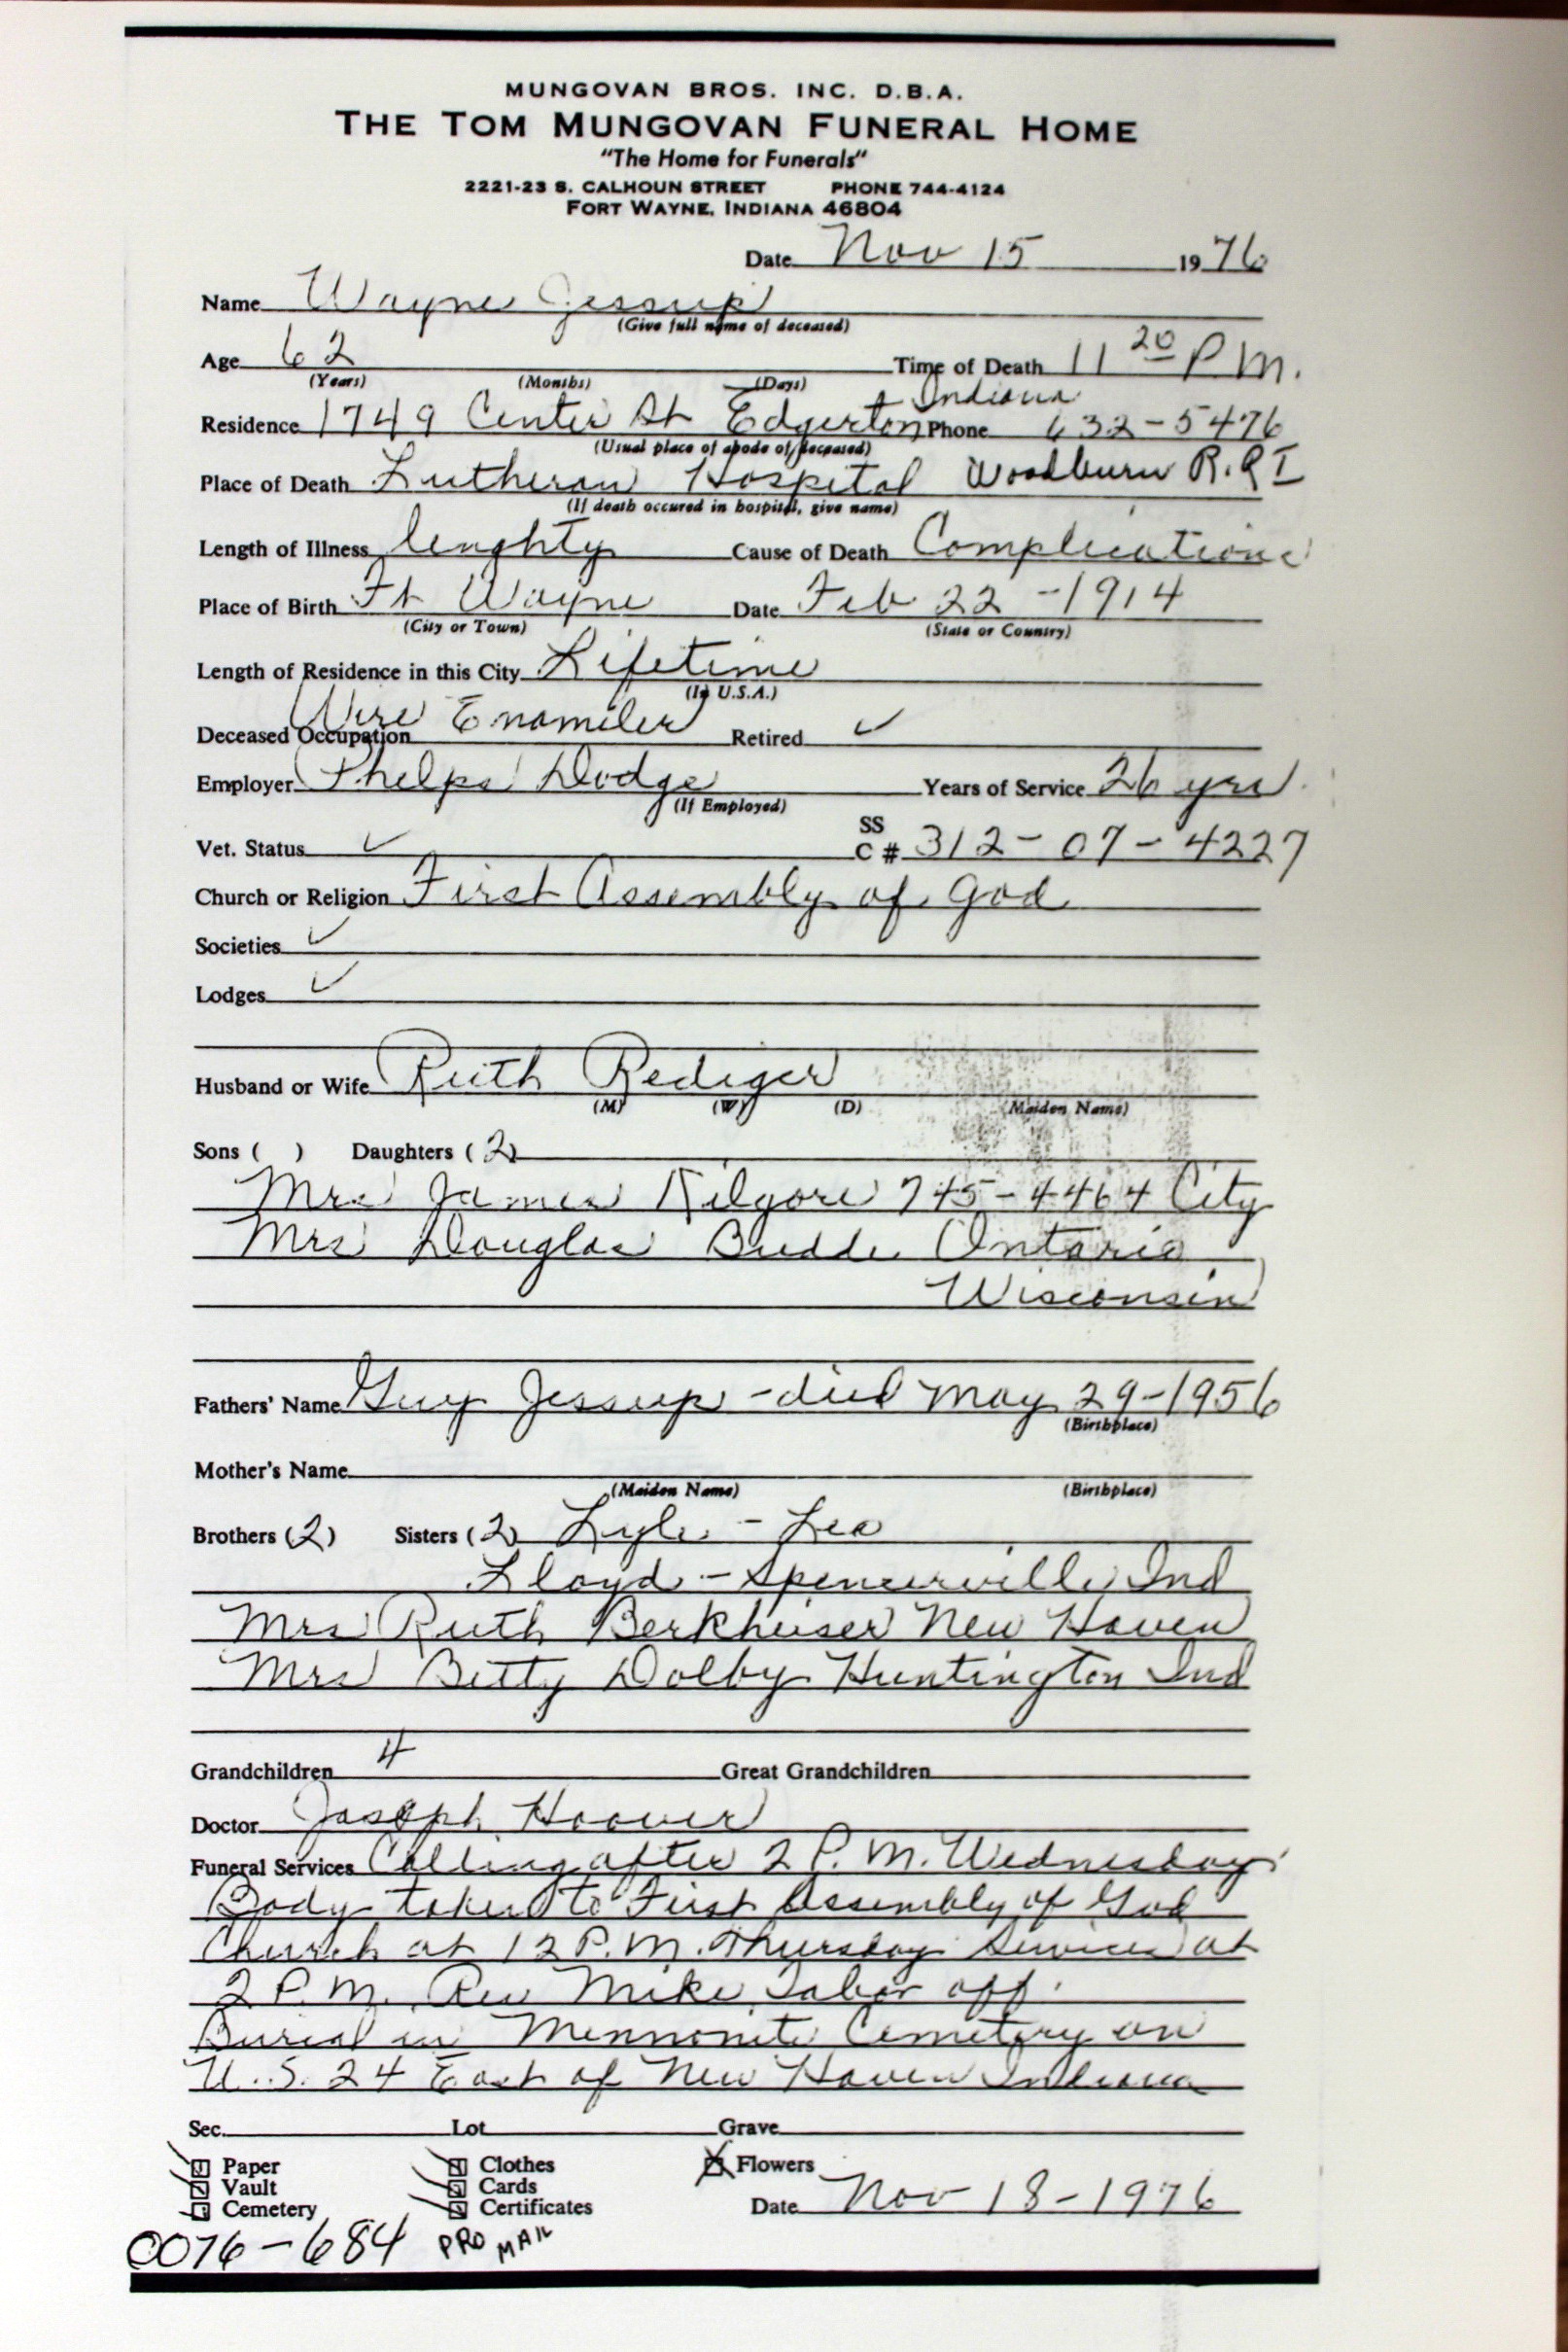 MUNGOVAN BROS. INC. D.B.A.
THE TOM MUNGOVAN FUNERAL HOME
"The Home for Funerals"
2221-23 S. CALHOUN STREET PHONE 744-4124
FORT WAYNE, INDIANA 46804
Date Nov 15 1976
Name Wayne Jessup
(Give full name of deceased)
Age 62 Time of Death 11 20 P M.
(Years) (Months) (Days)
Indiana
Residence 1749 Center St Edgerton Phone 632-5476
(Usual place of abode of deceased)
Place of Death Lutheran Hospital Woodburn R.R I
(If death occured in hospital, give name)
Length of Illness lenghty Cause of Death Complications
Place of Birth Ft Wayne Date Feb 22 - 1914
(City or Town) (State or Country)
Length of Residence in this City Lifetime
(In U.S.A.)
Deceased Occupation Wire Enameler Retired ✓
Employer Phelps Dodge Years of Service 26 yrs
(If Employed)
Vet. Status ✓ SS C # 312-07-4227
Church or Religion First Assembly of God
Societies ✓
Lodges ✓
Husband or Wife Ruth Rediger
(M) (W) (D) (Maiden Name)
Sons ( ) Daughters (2)
Mrs James Kilgore 745-4464 City
Mrs Douglas Budde Ontario
Wisconsin
Fathers' Name Guy Jessup - died May 29-1956
(Birthplace)
Mother's Name
(Maiden Name) (Birthplace)
Brothers (2) Sisters (2) Lyle - Leo
Lloyd - Spencerville Ind
Mrs Ruth Berkheiser New Haven
Mrs Betty Dolby Huntington Ind
Grandchildren 4 Great Grandchildren
Doctor Joseph Hoover
Funeral Services Calling after 2 P.M. Wednesday
Body taken to First Assembly of God
Church at 12 P.M. Thursday Services at
2 P.M. Rev Mike Tabor off.
Burial in Mennonite Cemetery on
U.S. 24 East of New Haven Indiana
Sec. Lot Grave
Paper Clothes Flowers
Vault Cards
Cemetery Certificates Date Nov 18-1976
0076-684 PRO MAIL